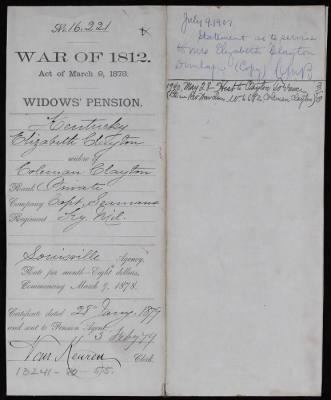 No. 16,221
WAR OF 1812.
Act of March 9, 1878.
WIDOWS' PENSION.
Kentucky
Elizabeth Clayton
widow of
Coleman Clayton
Rank Private
Company Capt. Seamans
Regiment Ky. Mil.
Louisville Agency.
Rate per month Eight dollars,
Commencing March 9, 1878.
Certificate dated 28" Jany. 1879
and sent to Pension Agent,
3 Feby 79
Van Keuren Clerk.
13241-80-575.
July 9, 1907
Statement as to service
to Mrs Elizabeth Clayton
Dunlap (Copy)
1940 May 28 Hist to Clayton
Coleman Clayton